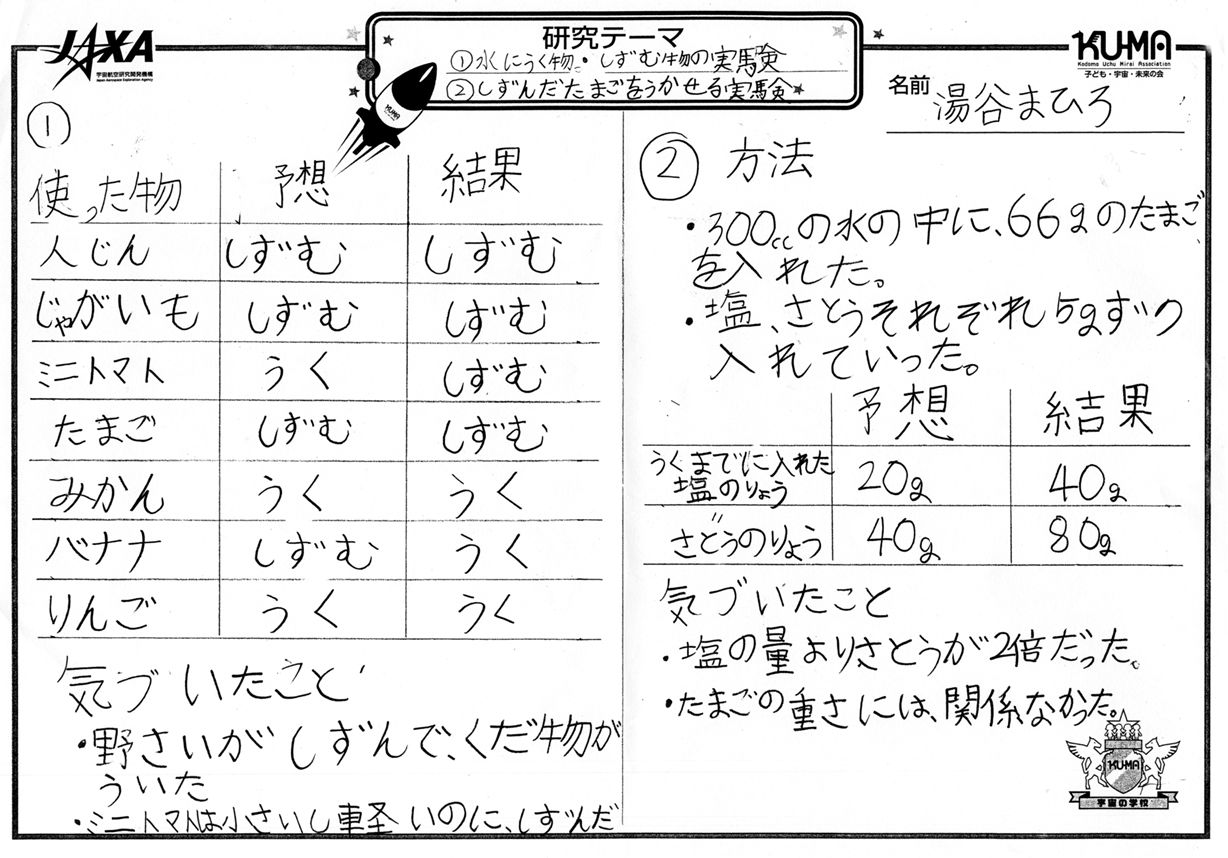 JAXA
宇宙航空研究開発機構
Japan Aerospace Exploration Agency
研究テーマ
①水にうく物・しずむ物の実験
②しずんだたまごをうかせる実験
KUMA
KU-MA
Kodomo Uchu Mirai Association
子ども・宇宙・未来の会
名前 湯谷まひろ
①
使った物 予想 結果
人じん しずむ しずむ
じゃがいも しずむ しずむ
ミニトマト うく しずむ
たまご しずむ しずむ
みかん うく うく
バナナ しずむ うく
りんご うく うく
気づいたこと
・野さいがしずんで、くだ物が
ういた
・ミニトマトは小さいし軽いのに、しずんだ
② 方法
・300ccの水の中に、66gのたまご
を入れた。
・塩、さとうそれぞれ5gずつ
入れていった。
予想 結果
うくまでに入れた
塩のりょう 20g 40g
さとうのりょう 40g 80g
気づいたこと
・塩の量よりさとうが2倍だった。
・たまごの重さには、関係なかった。
KU-MA
宇宙の学校